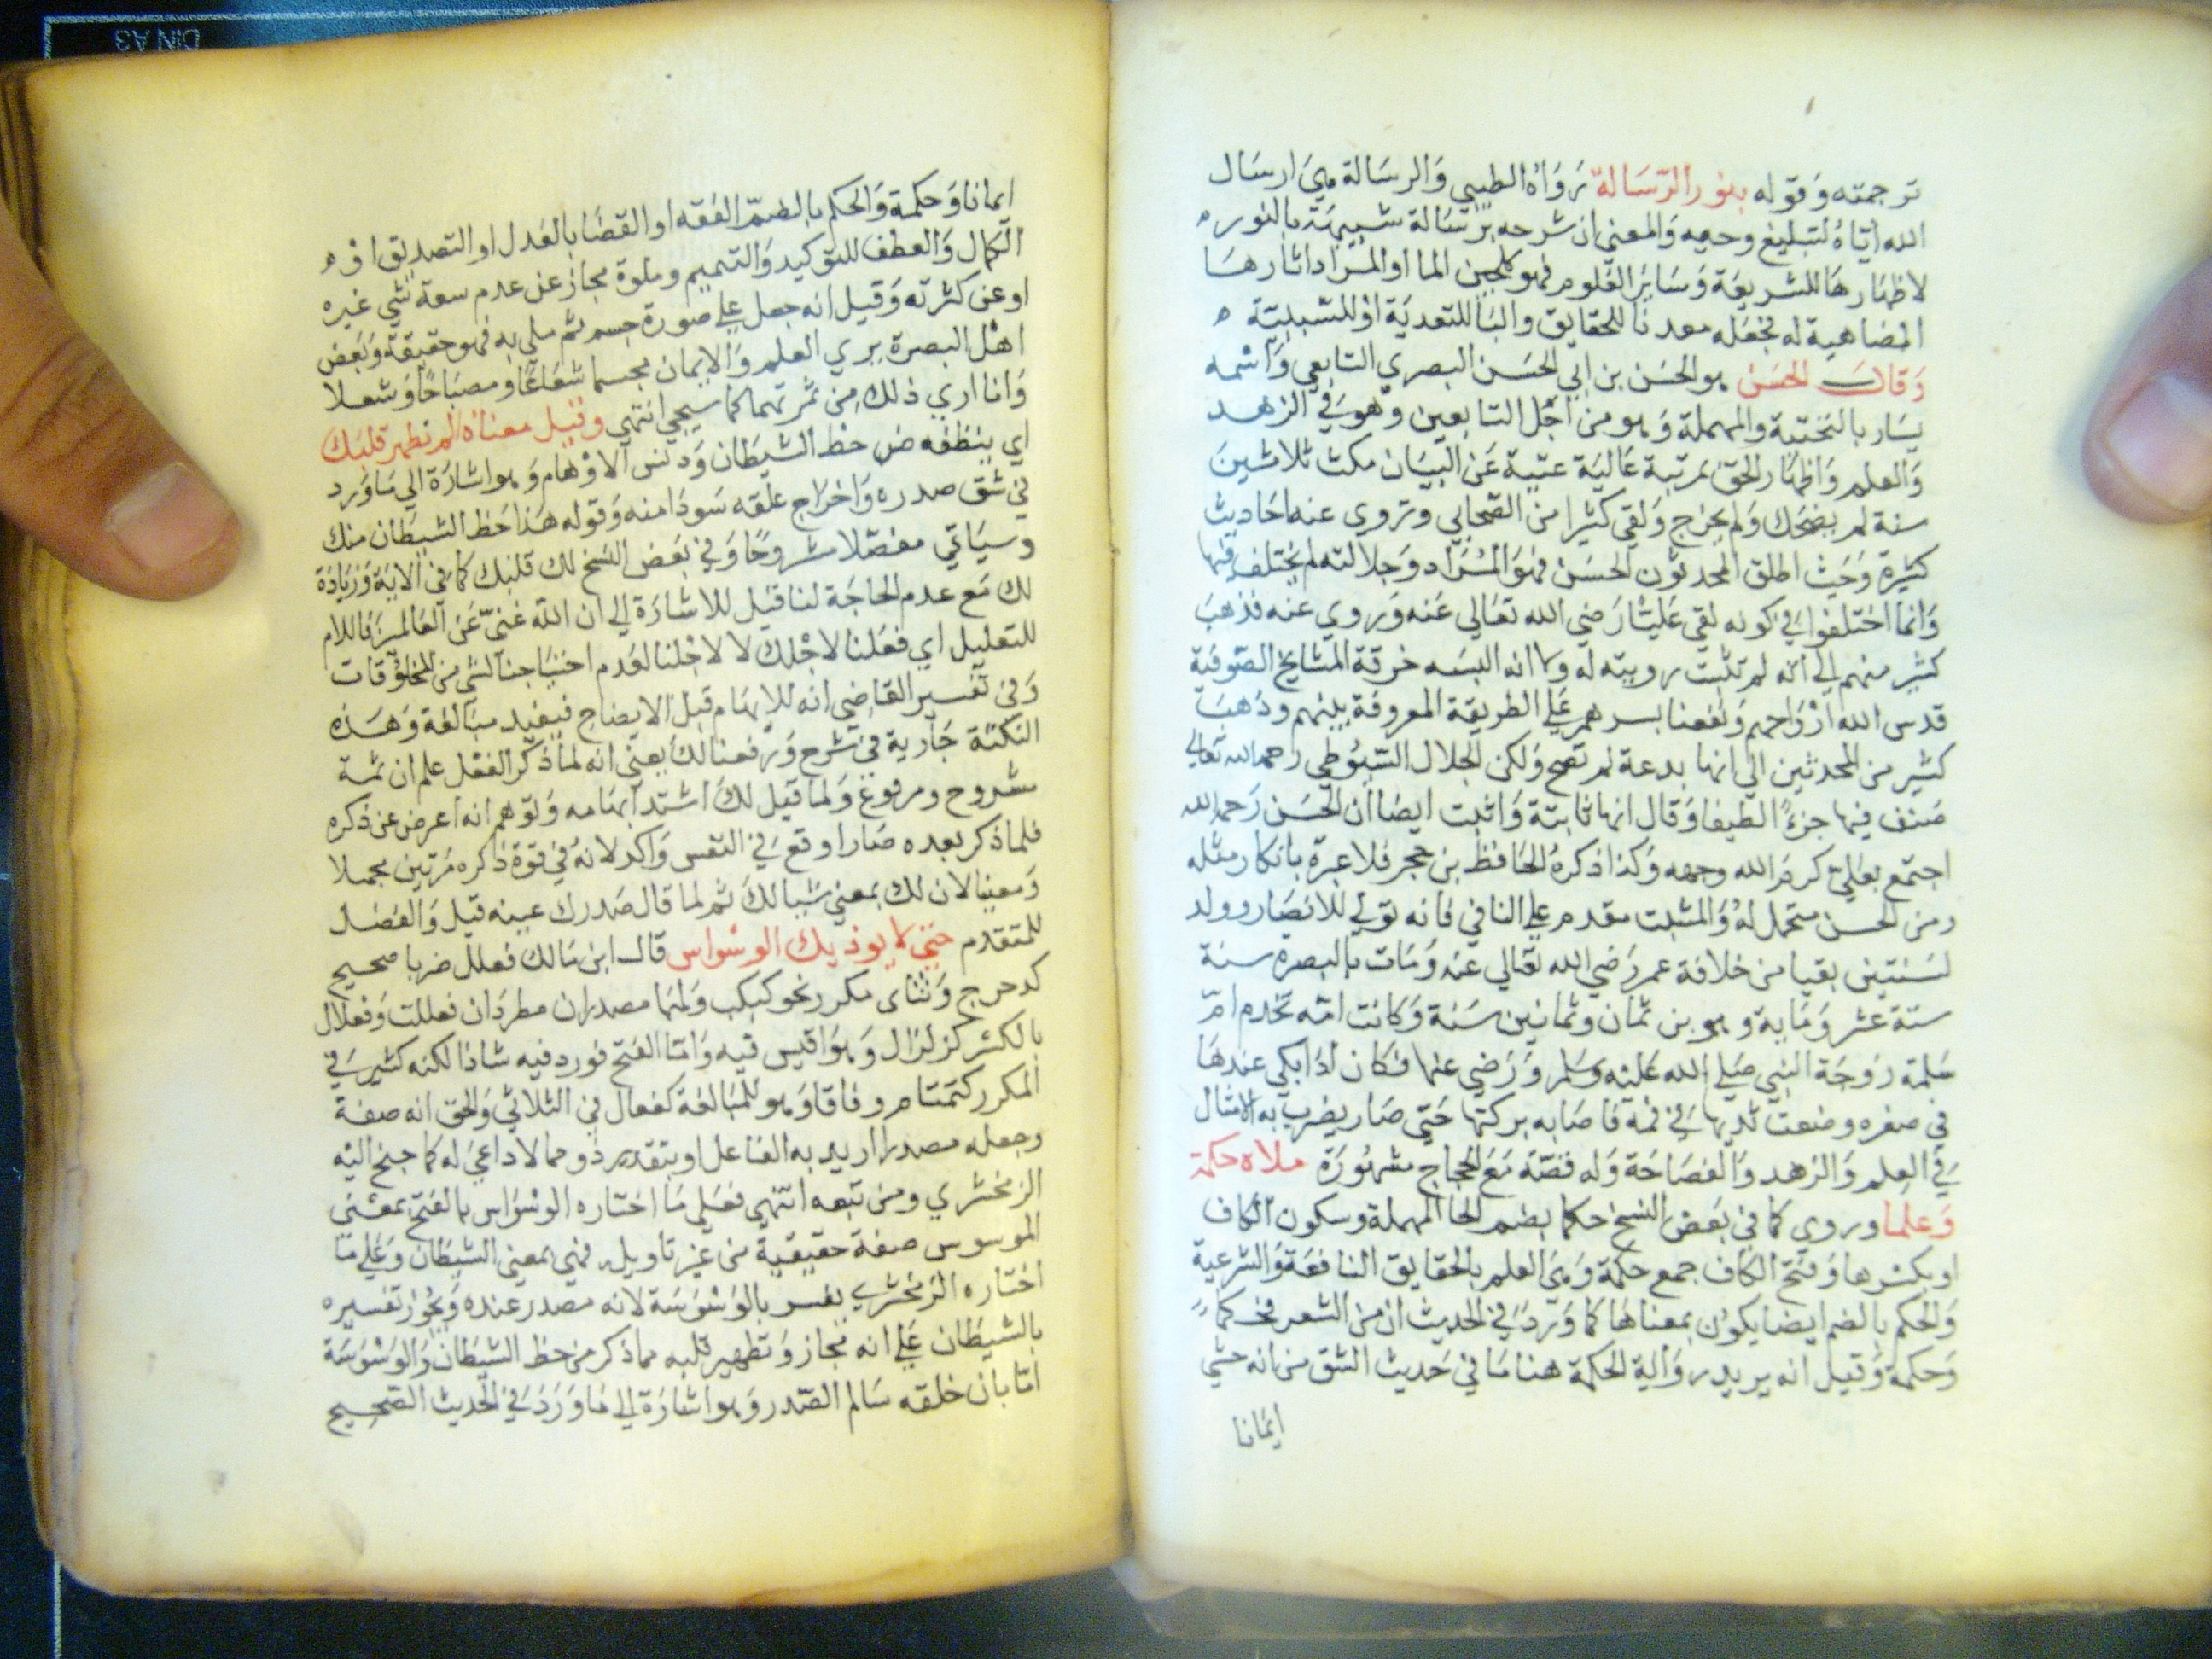 ترجمته وقوله بنور الرسالة رواه الطيبي والرسالة هي ارسال
الله اياه لتبليغ وحيه والمعني ان شرحه برسالة شبيهة بالنور
لاظهارها الشريعة وسائر العلوم فهو كلجين الما او المراد اثارها
المضاهية له بجعله معدنا للحقايق والبا للتعدية او للسببية
وقال الحسن هو الحسن بن ابي الحسن البصري التابعي واسمه
يسار بالتحتية والمهملة وهو من اجل التابعين وهو في الزهد
والعلم واظهار الحق بمرتبة عالية غنية عن البيان مكث ثلاثين
سنة لم يضحك ولم يمزح ولقي كثيرا من الصحابي وتروي عنه احاديث
كثيرة وحيث اطلق المحدثون الحسن فهو المراد وجلالته لم يختلف فيها
وانما اختلفوا في كونه لقي عليا رضي الله تعالي عنه وروي عنه فذهب
كثير منهم الي انه لم تثبت رويته له ولا انه البسه خرقة المشايخ الصوفية
قدس الله ارواحهم ونفعنا بسرهم علي الطريقة المعروفة بينهم وذهب
كثير من المحدثين الي انها بدعة لم تصح ولكن الجلال السيوطي رحمه الله تعالي
صنف فيها جزءا لطيفا وقال انها ثابتة واثبت ايضا ان الحسن رحمه الله
اجتمع بعلي كرم الله وجهه وكذا ذكره الحافظ بن حجر فلا عبرة بانكار مثله
ومن الحسن متحمل له والمثبت مقدم علي النافي فانه تولي للانصار وولد
لسنتين بقيا من خلافة عمر رضي الله تعالي عنه ومات بالبصرة سنة
ستة عشر وماية وهو بن ثمان وثمانين سنة وكانت امه تخدم ام
سلمة زوجة النبي صلي الله عليه وسلم ورضي عنها فكان اذا بكي عندها
في صغره وضعت ثديها في فمه فاصابه بركتها حتي صار يضرب به الامثال
في العلم والزهد والفصاحة وله قصة مع الحجاج مشهورة ملاه حكمة
وعلما وروي كما في بعض النسخ حكما بضم الحا المهملة وسكون الكاف
او بكسرها وفتح الكاف جمع حكمة وهي العلم بالحقايق النافعة والشرعية
والحكم بالضم ايضا يكون بمعناها كما ورد في الحديث ان من الشعر لحكما
وحكمة وقيل انه يريد رواية الحكمة هنا ما في حديث الشق من انه حشي
ايمانا
ايمانا وحكمة والحكم بالضم الفقه او القضا بالعدل او التصديق او
الكمال والعطف للتوكيد والتتميم وملوه مجاز عن عدم سعة شي غيره
او عن كثرته وقيل انه جعل علي صورة جسم ثم ملي به فهو حقيقة وبعض
اهل البصرة يري العلم والايمان مجسما شعاعا ومصباحا وشعلا
وانا اري ذلك من ثمرتهما كما سيجي انتهي وقيل معناه الم نطهر قلبك
اي ينظفه من حظ الشيطان ودنس الاوهام وهو اشارة الي ما ورد
في شق صدره واخراج علقه سودا منه وقوله هذا حظ الشيطان منك
وسياتي مفصلا مشروحا وفي بعض النسخ لك قلبك كما في الاية وزيادة
لك مع عدم الحاجة لنا قيل للاشارة الي ان الله غني عن العالمين فاللام
للتعليل اي فعلنا لاجلك لا لاجلنا لعدم احتياجنا لشي من المخلوقات
وفي تفسير القاضي انه للابهام قبل الايضاح فيفيد مبالغة وهذه
النكتة جارية في شرح ورفعنا لك يعني انه لما ذكر الفعل علم ان ثمة
مشروح ومرفوع ولما قيل لك اشتد ابهامه وتوهم انه اعرض عن ذكره
فلما ذكر بعده صار اوقع في النفس واكد لانه في قوة ذكره مرتين مجملا
ومعينا لان لك بمعني شيا لك ثم لما قال صدرك عينه قيل والفضل
للمتقدم حتي لا يوذيك الوسواس قال ابن مالك فعلل ضربا صحيح
كدحرج وثناي مكرر نحو كبكب ولهما مصدران مطردان فعللة وفعلال
بالكسر كزلزال وهو اقيس فيه واما الفتح فورد فيه شاذا لكنه كثير في
المكرر كتمتام وفافا وهو للمبالغة كفعال في الثلاثي والحق انه صفة
وجعله مصدرا اريد به الفاعل او بتقدير ذو مما لا داعي له كما جنح اليه
الزمخشري ومن تبعه انتهي فعلي ما اختاره الوسواس بالفتح بمعني
الموسوس صفة حقيقية من غير تاويل فهي بمعني الشيطان وعلي ما
اختاره الزمخشري يفسر بالوسوسة لانه مصدر عنده ويجوز تفسيره
بالشيطان علي انه مجاز وتطهير قلبه مما ذكر من حظ الشيطان والوسوسة
اما بان خلقه سالم الصدر وهو اشارة الي ما ورد في الحديث الصحيح